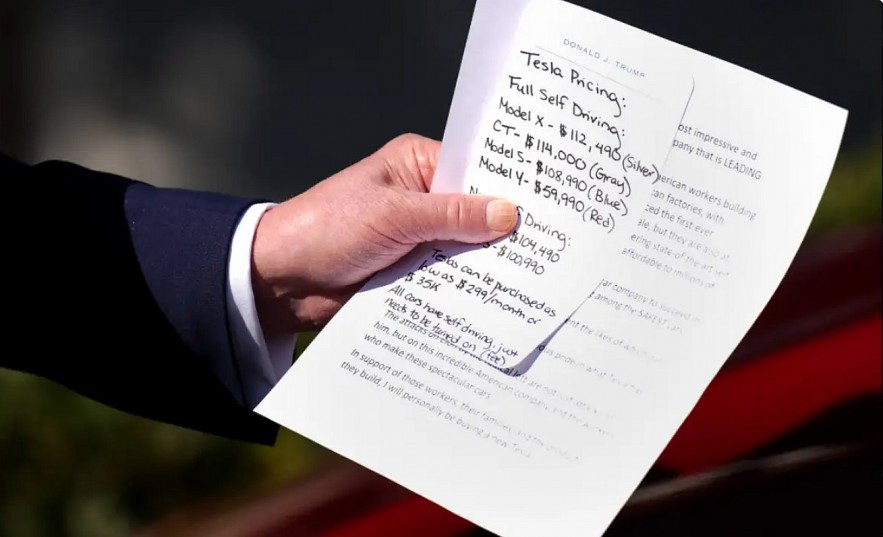 DONALD J. TRUMP
Tesla Pricing:
Full Self Driving:
Model X - $112,490 (Silver)
CT- $114,000 (Gray)
Model S - $108,990 (Blue)
Model Y- $59,990 (Red)
Driving:
$104,490
- $100,990
Teslas can be purchased as
low as $299/month or
$35K
All cars have self driving, just
needs to be turned on
ost impressive and
pany that is LEADING
erican workers building
can factories, with
ced the first ever
ale, but they are also at
ering state-of-the-art self
affordable to millions of
ar company to succeed in
among the SAFEST cars
The attacks on
are not just
him, but on this incredible American company and the workers
who make these spectacular cars.
In support of those workers, their families, and the product
they build, I will personally be buying a new Tesla